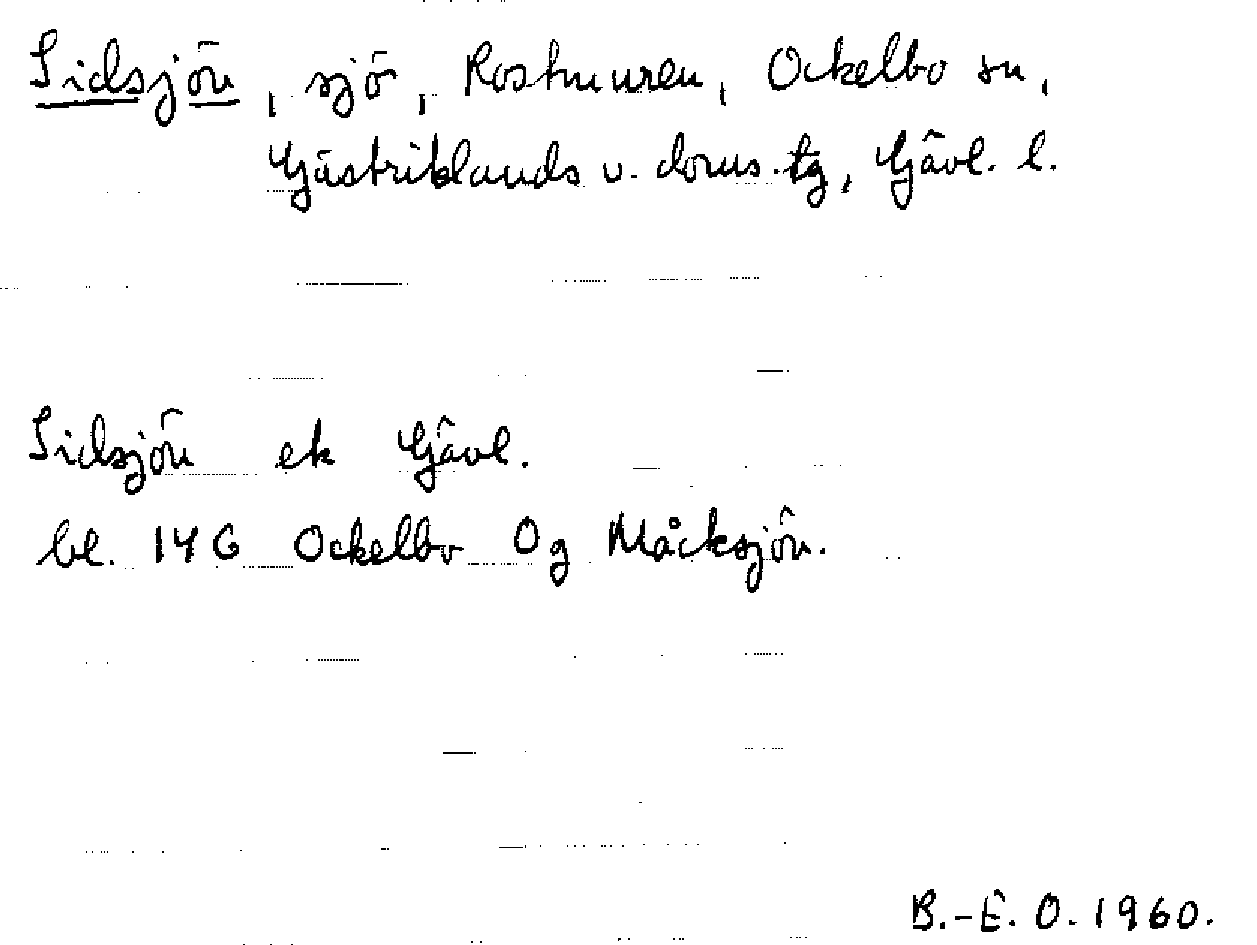 Sidsjön, sjö, Roshmuren, Ockelbo sn,
Gästriklands v. doms.tg, Gävl. l.
Sidsjön ek Gävl.
bl. 146 Ockelbo Og Måcksjön.
B.-E. O. 1960.